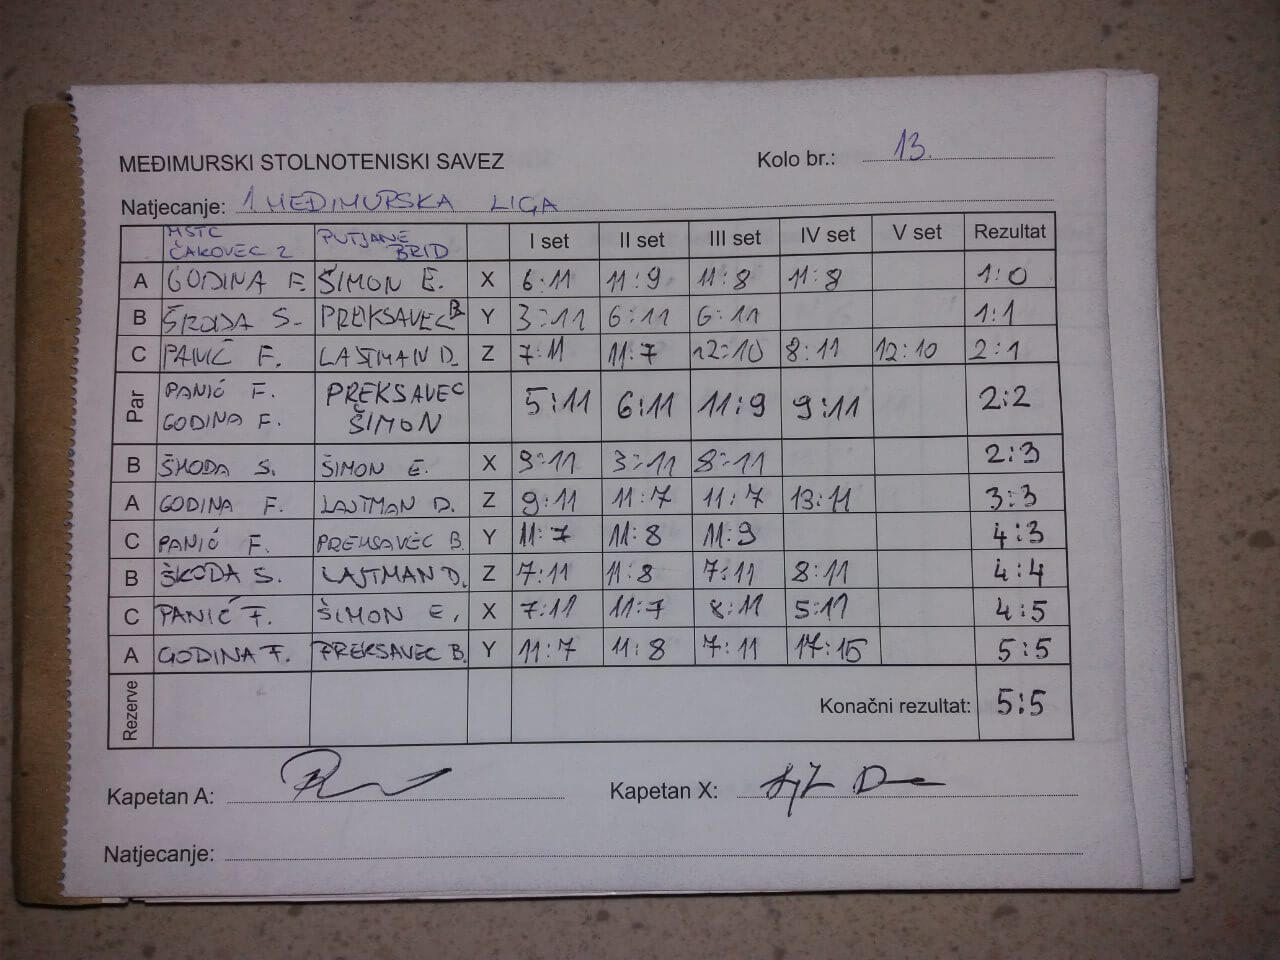 MEĐIMURSKI STOLNOTENISKI SAVEZ Kolo br.: 13.
Natjecanje: 1 MEĐIMURSKA LIGA
MSTC ČAKOVEC 2 PUTJANE BRID I set II set III set IV set V set Rezultat
A GODINA F. ŠIMON E. X 6:11 11:9 11:8 11:8 1:0
B ŠKODA S. PREKSAVEC B Y 3:11 6:11 6:11 1:1
C PANIĆ F. LAJTMAN D. Z 7:11 11:7 12:10 8:11 12:10 2:1
Par PANIĆ F. GODINA F. PREKSAVEC ŠIMON 5:11 6:11 11:9 9:11 2:2
B ŠKODA S. ŠIMON E. X 9:11 3:11 8:11 2:3
A GODINA F. LAJTMAN D. Z 9:11 11:7 11:7 13:11 3:3
C PANIĆ F. PREKSAVEC B. Y 11:7 11:8 11:9 4:3
B ŠKODA S. LAJTMAN D. Z 7:11 11:8 7:11 8:11 4:4
C PANIĆ F. ŠIMON E. X 7:11 11:7 8:11 5:11 4:5
A GODINA F. PREKSAVEC B. Y 11:7 11:8 7:11 17:15 5:5
Rezerve Konačni rezultat: 5:5
Kapetan A: Kapetan X:
Natjecanje: